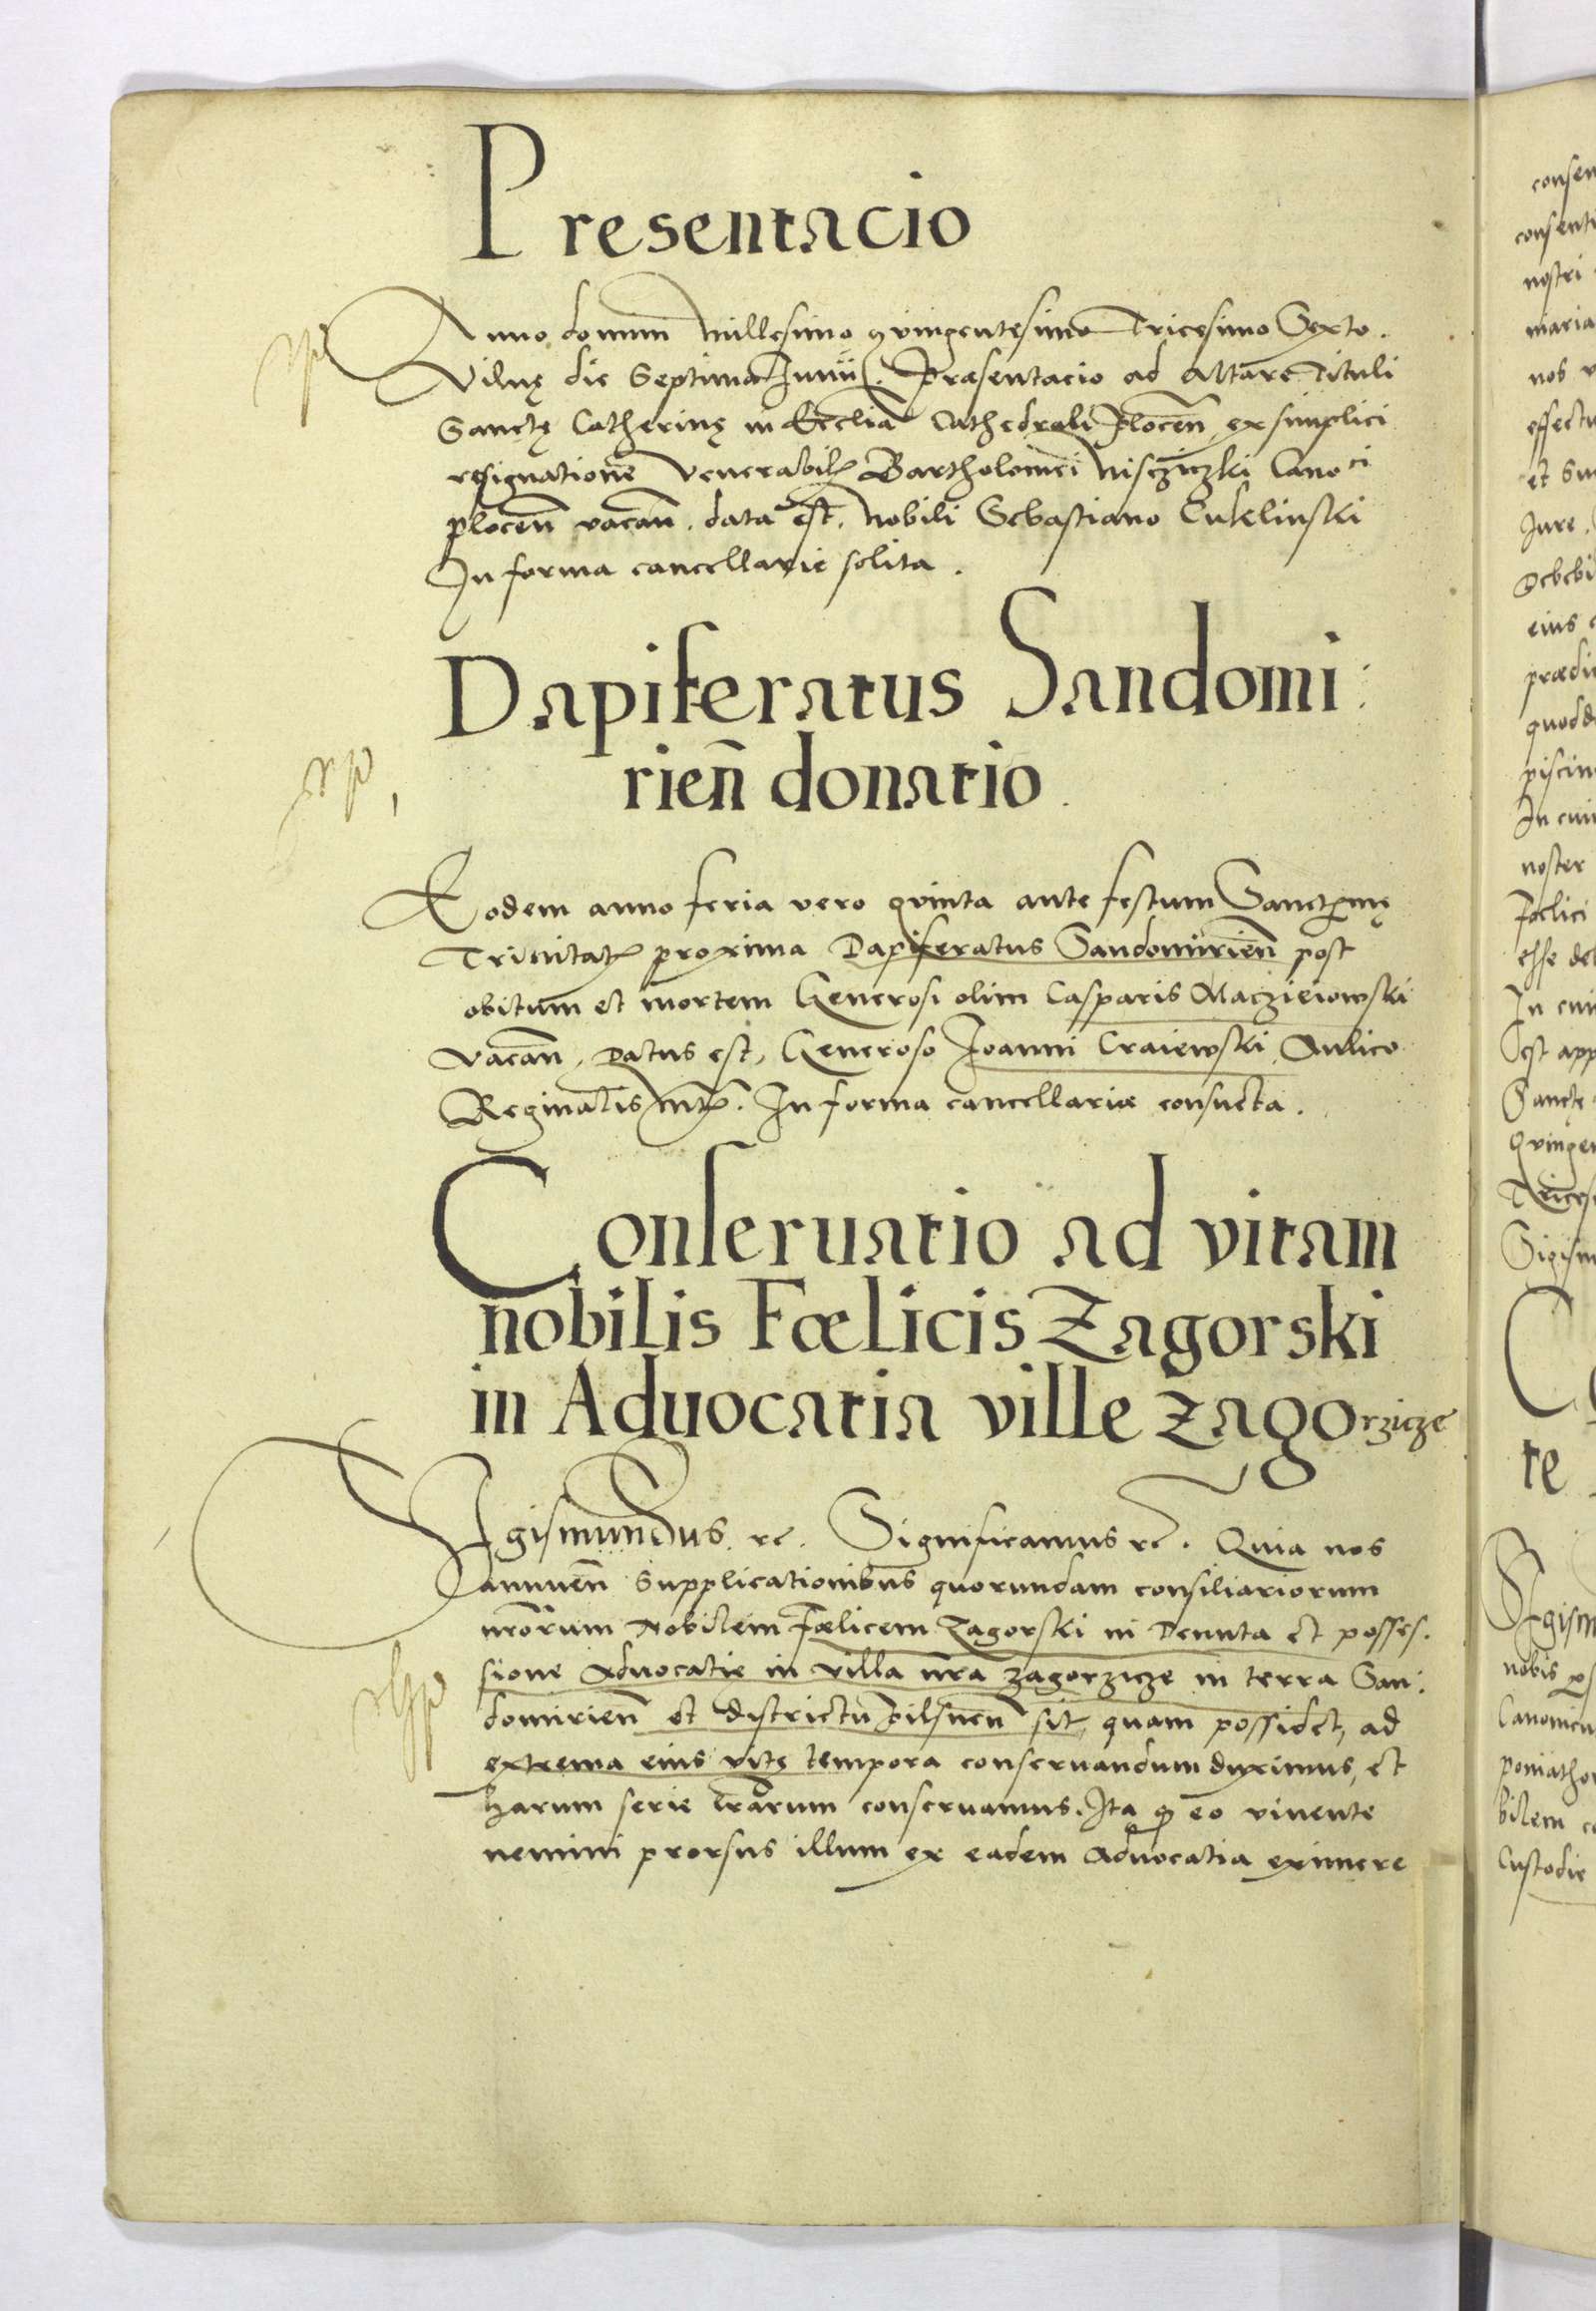 Presentacio
Anno domini millesimo quingentesimo Tricesimo Sexto.
Vilnę die Septima Junii. Præsentacio ad Altare Tituli
Sanctę Catherinę in Ecclīa Cathedrali Plocen̄ ex simplici
resignatione venerabilꝭ Bartholomei Nisczičzki Canoci
plocen̄ vacan̄. data est. Nobili Sebastiano Cukelinski
In forma cancellarie solita.
Dapiferatus Sandomi:
rien̄ donatio.
Eodem anno feria vero quinta ante festum Sanctꝭmę
Trinitatꝭ proxima Dapiferatus Sandomirien̄ post
obitum et mortem Generosi olim Casparis Macziejowski
vacan̄, Datus est, Generoso Joanni Craiewski Aulico
Reginalis Mtꝭ. In forma cancellariæ consueta.
Conseruatio ad vitam
nobilis Fœlicis Zagorski
in Aduocatia ville Zagorzicze
Sigismundus rc. Significamus rc. Quia nos
annuen̄ supplicationibus quorundam consiliariorum
nr̄orum Nobilem Fœlicem Zagorski in Tenuta et posses.
sione Aduocatie in villa nr̄a Zagorzicze in terra San:
domirien̄ et districtu Pilsnen̄ sit, quam possidet, ad
extrema eius vitę tempora conseruandum duximus, et
harum serie lr̄arum conseruamus. Ita ꝙ eo viuente
nemini prorsus illum ex eadem Aduocatia eximere
consen
consenti
nostri
maria
nos
effectu
et Su
Jure.
Debebi
eius
prædic
quodd
piscin
In cui
noster
Fœlici
esse de
In cui
est app
Sancte
Quingen
Trices
Sigism
te
Sigism
nobis
Canonicu
poniatho
bilem
Custodie